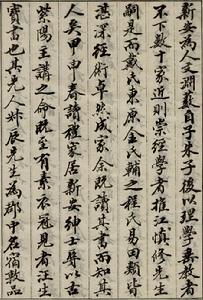 新安為人文淵藪自子朱子後以理學為教者
不下數十家近則崇經學者推江慎修先生
嗣是而戴氏東原金氏輔之程氏易田類皆
湛深經術卓然成家余既讀其書而知其
人矣甲申春讀禮家居新安紳士畀以古
紫陽主講之命既至有素衣冠見者汪生
寶書也其先人妣辰先生為郡中名宿敦品